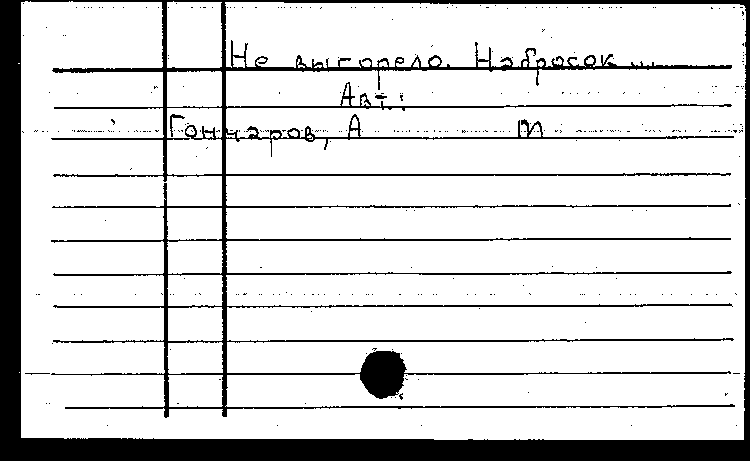 Не выгорело. Набросок ...
Авт.:
Гончаров, А m